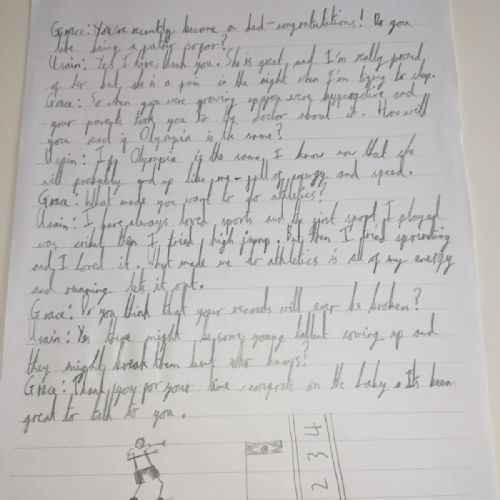 Grace: You've recently become a dad-congratulations! Do you
like being a father so far?
Usain: Yes I have, thank you. She is great, and I'm really proud
of her but, she is a pain in the night when I'm trying to sleep.
Grace: So when you were growing up you were hyperactive and
your parents took you to the doctor about it. How will
you react if Olympia is the same?
Usain: If Olympia is the same, I know now that she
will probably end up like me-full of energy and speed.
Grace: What made you want to do athletics?
Usain: I have always loved sports and the first sport I played
was cricket, then I tried high jump. But then I tried sprinting
and I loved it. What made me do athletics is all of my energy
and running lets it out.
Grace: Do you think that your records will ever be broken?
Usain: Yes there might be some young tallent coming up and
they might break them but who knows?
Grace: Thank you for your time, congrats on the baby. It's been
great to talk to you.
2 3 4